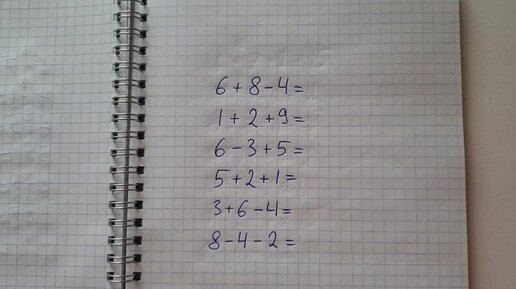 6+8-4=
1+2+9=
6-3+5=
5+2+1=
3+6-4=
8-4-2=